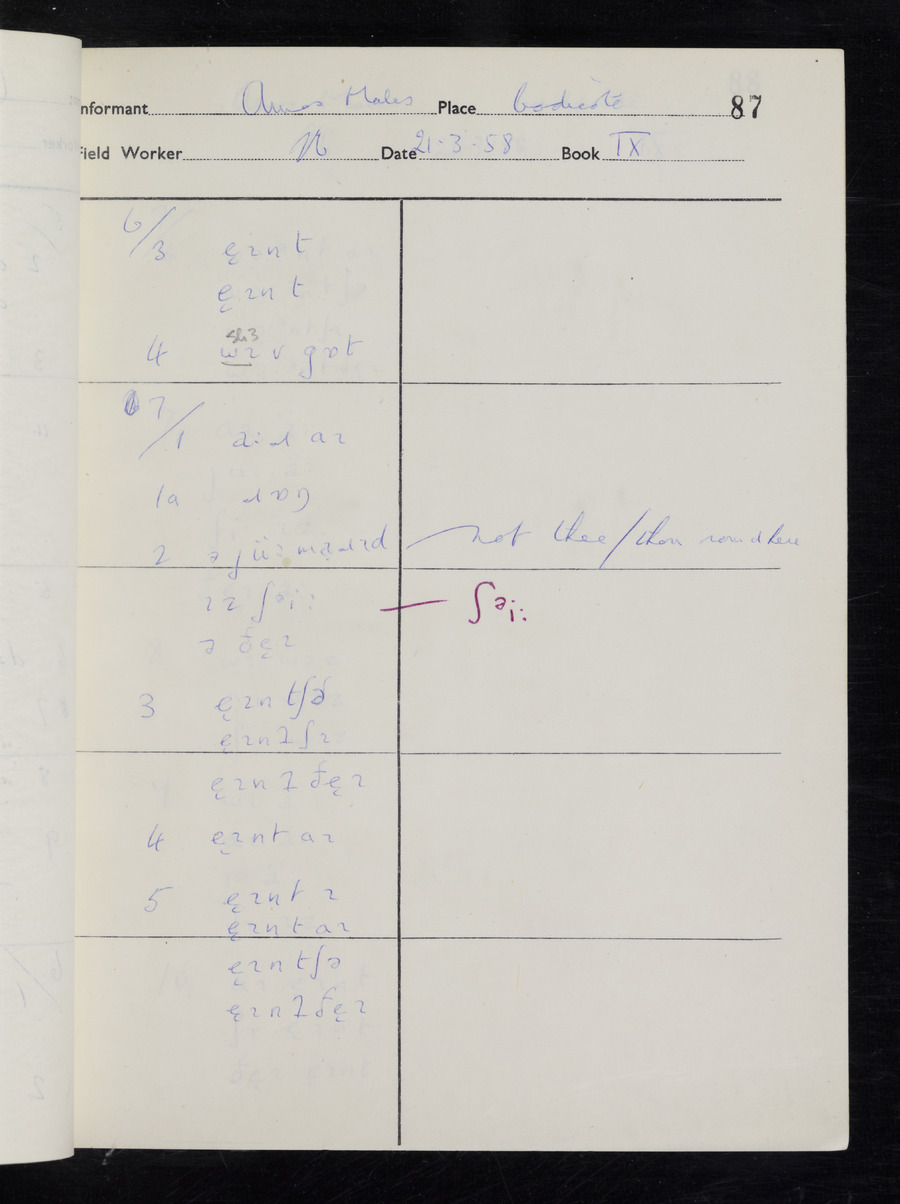 Informant Amos Hales Place Bodicote 87
Field Worker Date 21·3·58 Book IX
6/3 ę̣ɹn t
ę̣ɹn t
4 v gɒt
7/1 aɹ
1a
2 ə not thee/thou round here
ɹɹ ʃəi: — ʃəi:
ə ðęɹ
3 ęɹn tʃə
ęɹnʔ ʃɹ
ęɹnʔ ðęɹ
4 ęɹnt aɹ
5 ęɹnt ɹ
ęɹnt aɹ
ęɹn tʃə
ęɹnʔ ðęɹ